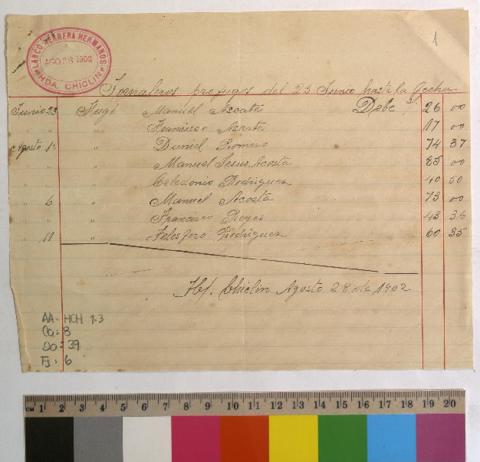 LARCO HERRERA HERMANOS
AGO 28 1902
HDA. CHICLIN
1
Jornaleros profugos del 23 Junio hasta la fecha
Junio 23 Fugó Manuel Azcate Debe S/. 26 00
" " Francisco Azcate 17 00
Agosto 1º " Daniel Romero 74 37
" " Manuel Jesus Acosta 85 00
" " Celedonio Rodriguez 40 60
" 6 " Manuel Acosta 73 00
" " Francisco Reyes 43 36
" 11 " Telesforo Rodriguez 60 35
Hda. Chiclin Agosto 28 de 1902
AA-HCH 1.3
Ca: 8
Do: 39
Fj: 6
cm 1 2 3 4 5 6 7 8 9 10 11 12 13 14 15 16 17 18 19 20